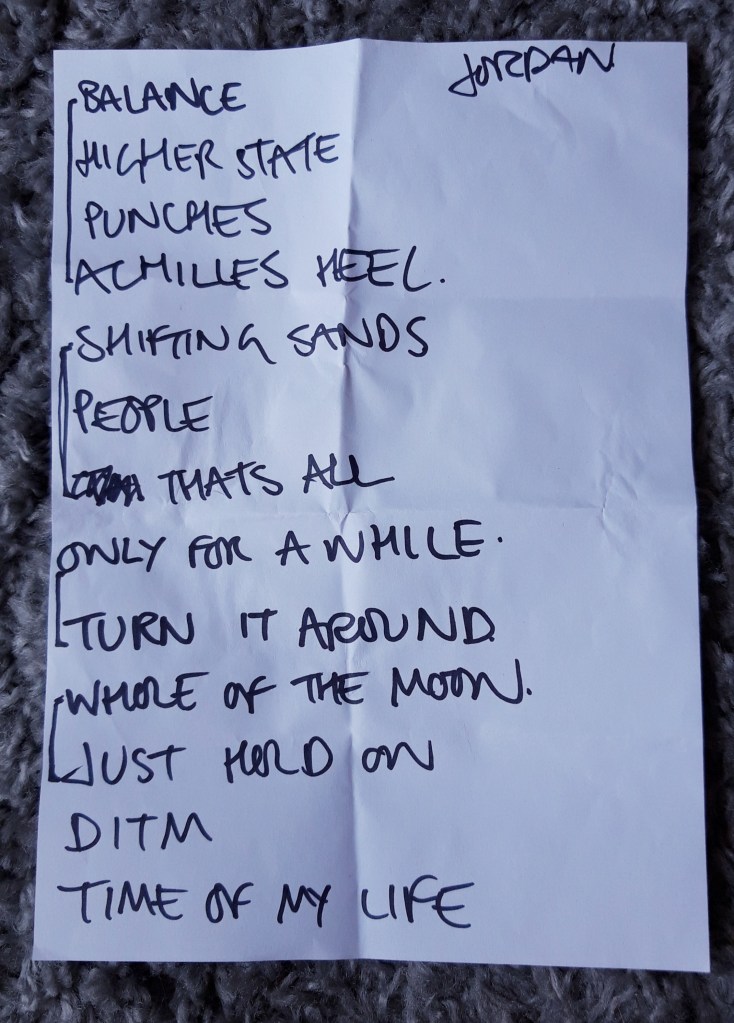 JORDAN
BALANCE
HIGHER STATE
PUNCHES
ACHILLES HEEL.
SHIFTING SANDS
PEOPLE
THATS ALL
ONLY FOR A WHILE.
TURN IT AROUND.
WHOLE OF THE MOON.
JUST HOLD ON
DITM
TIME OF MY LIFE